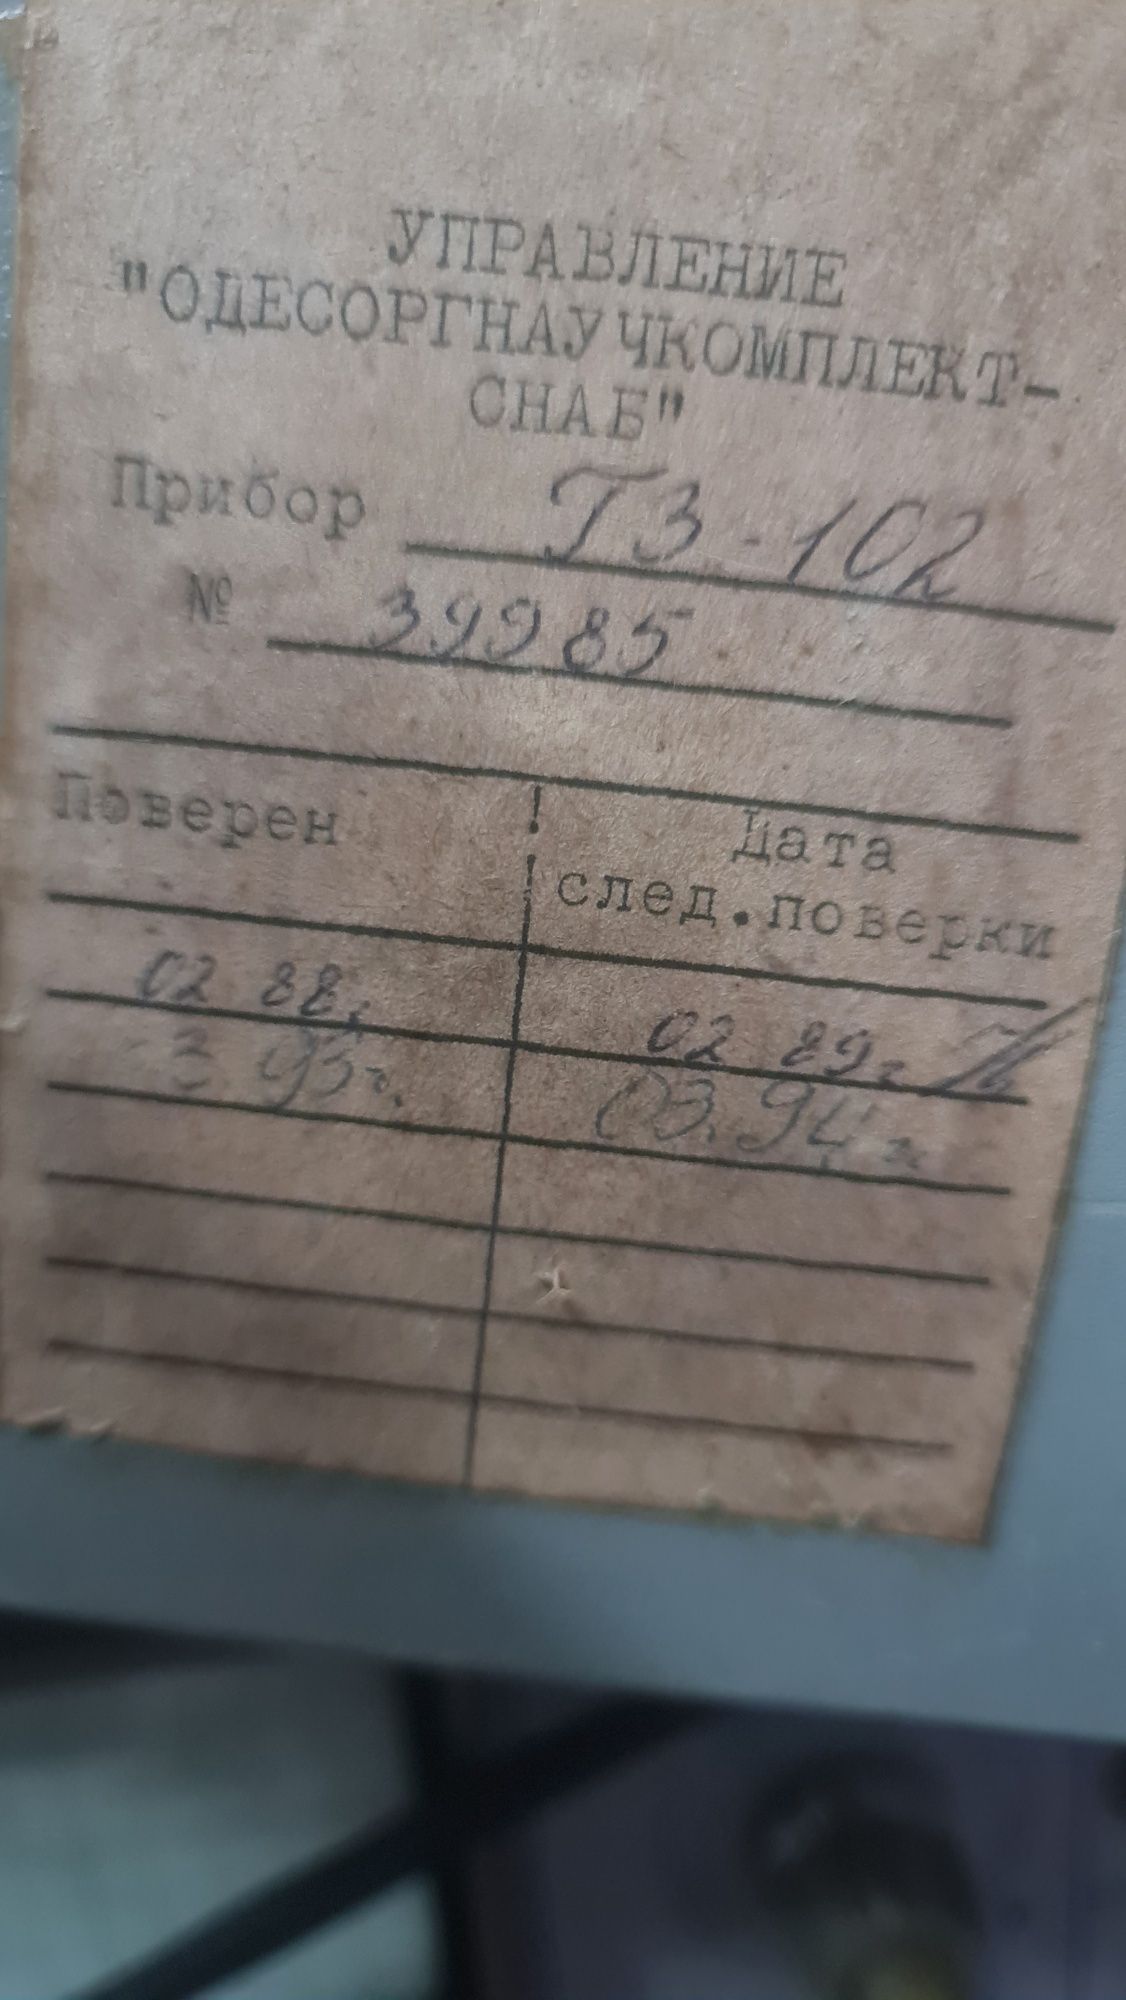 УПРАВЛЕНИЕ
"ОДЕСОРГНАУЧКОМПЛЕКТ-
СНАБ"
Прибор Г3-102
№ 39985
Поверен ! Дата
! след.поверки
02 88г 02 89г.
3 93г. 03.94г.